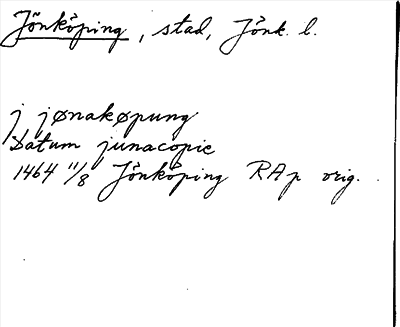 Jönköping, stad, Jönk. l.
j jønakøpung
Datum junacopie
1464 11/8 Jönköping RAp orig.